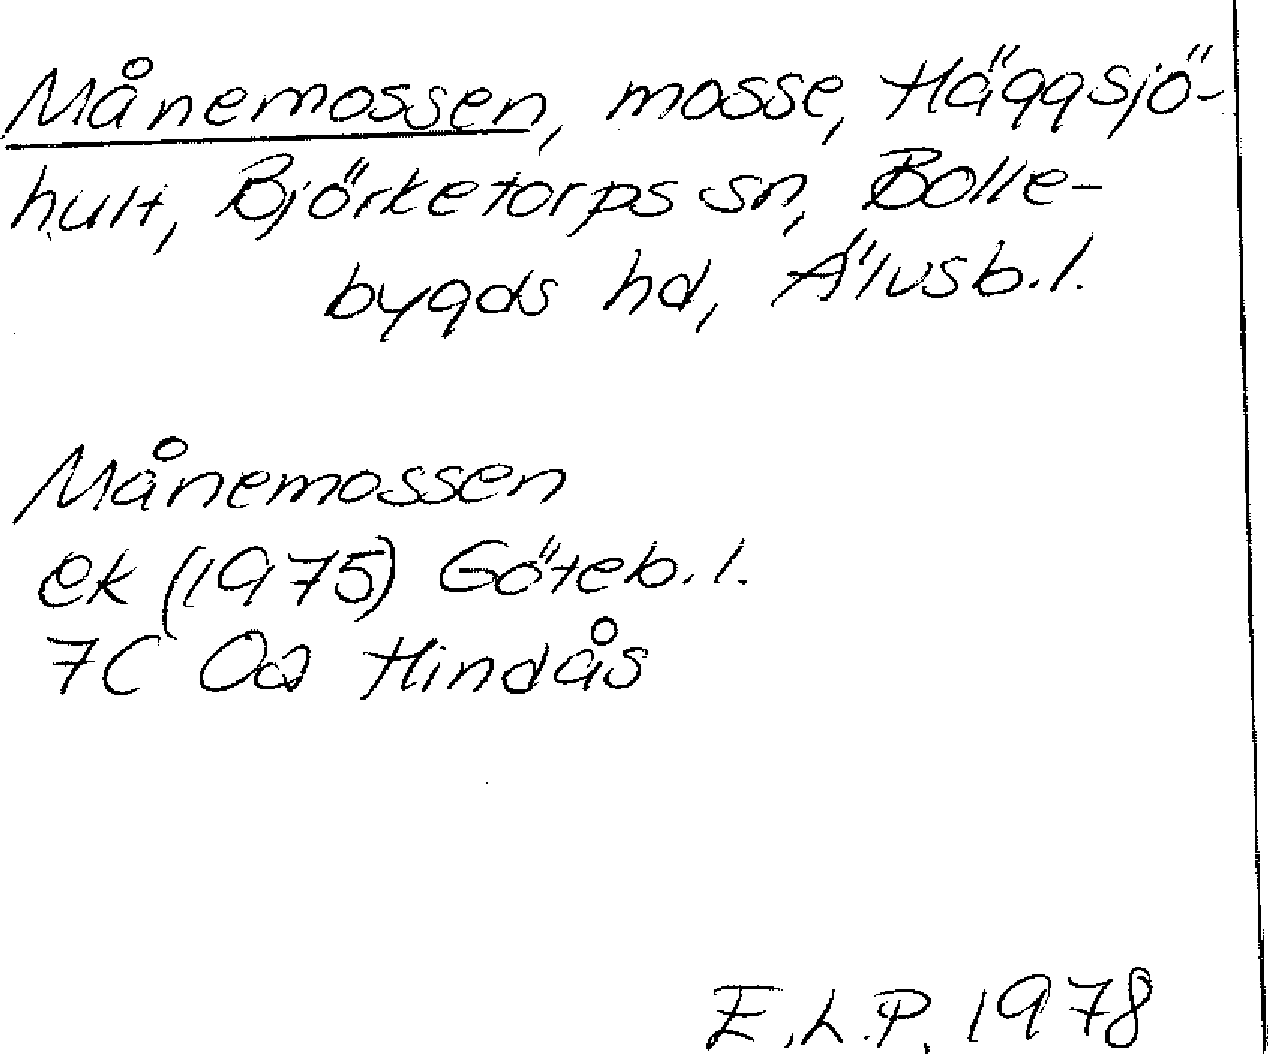 Månemossen, mosse, Häggsjö-
hult, Björketorps sn, Bolle-
bygds hd, Älvsb.l.
Månemossen
ek (1975) Göteb.l.
7C 0a Hindås
E.L.P. 1978